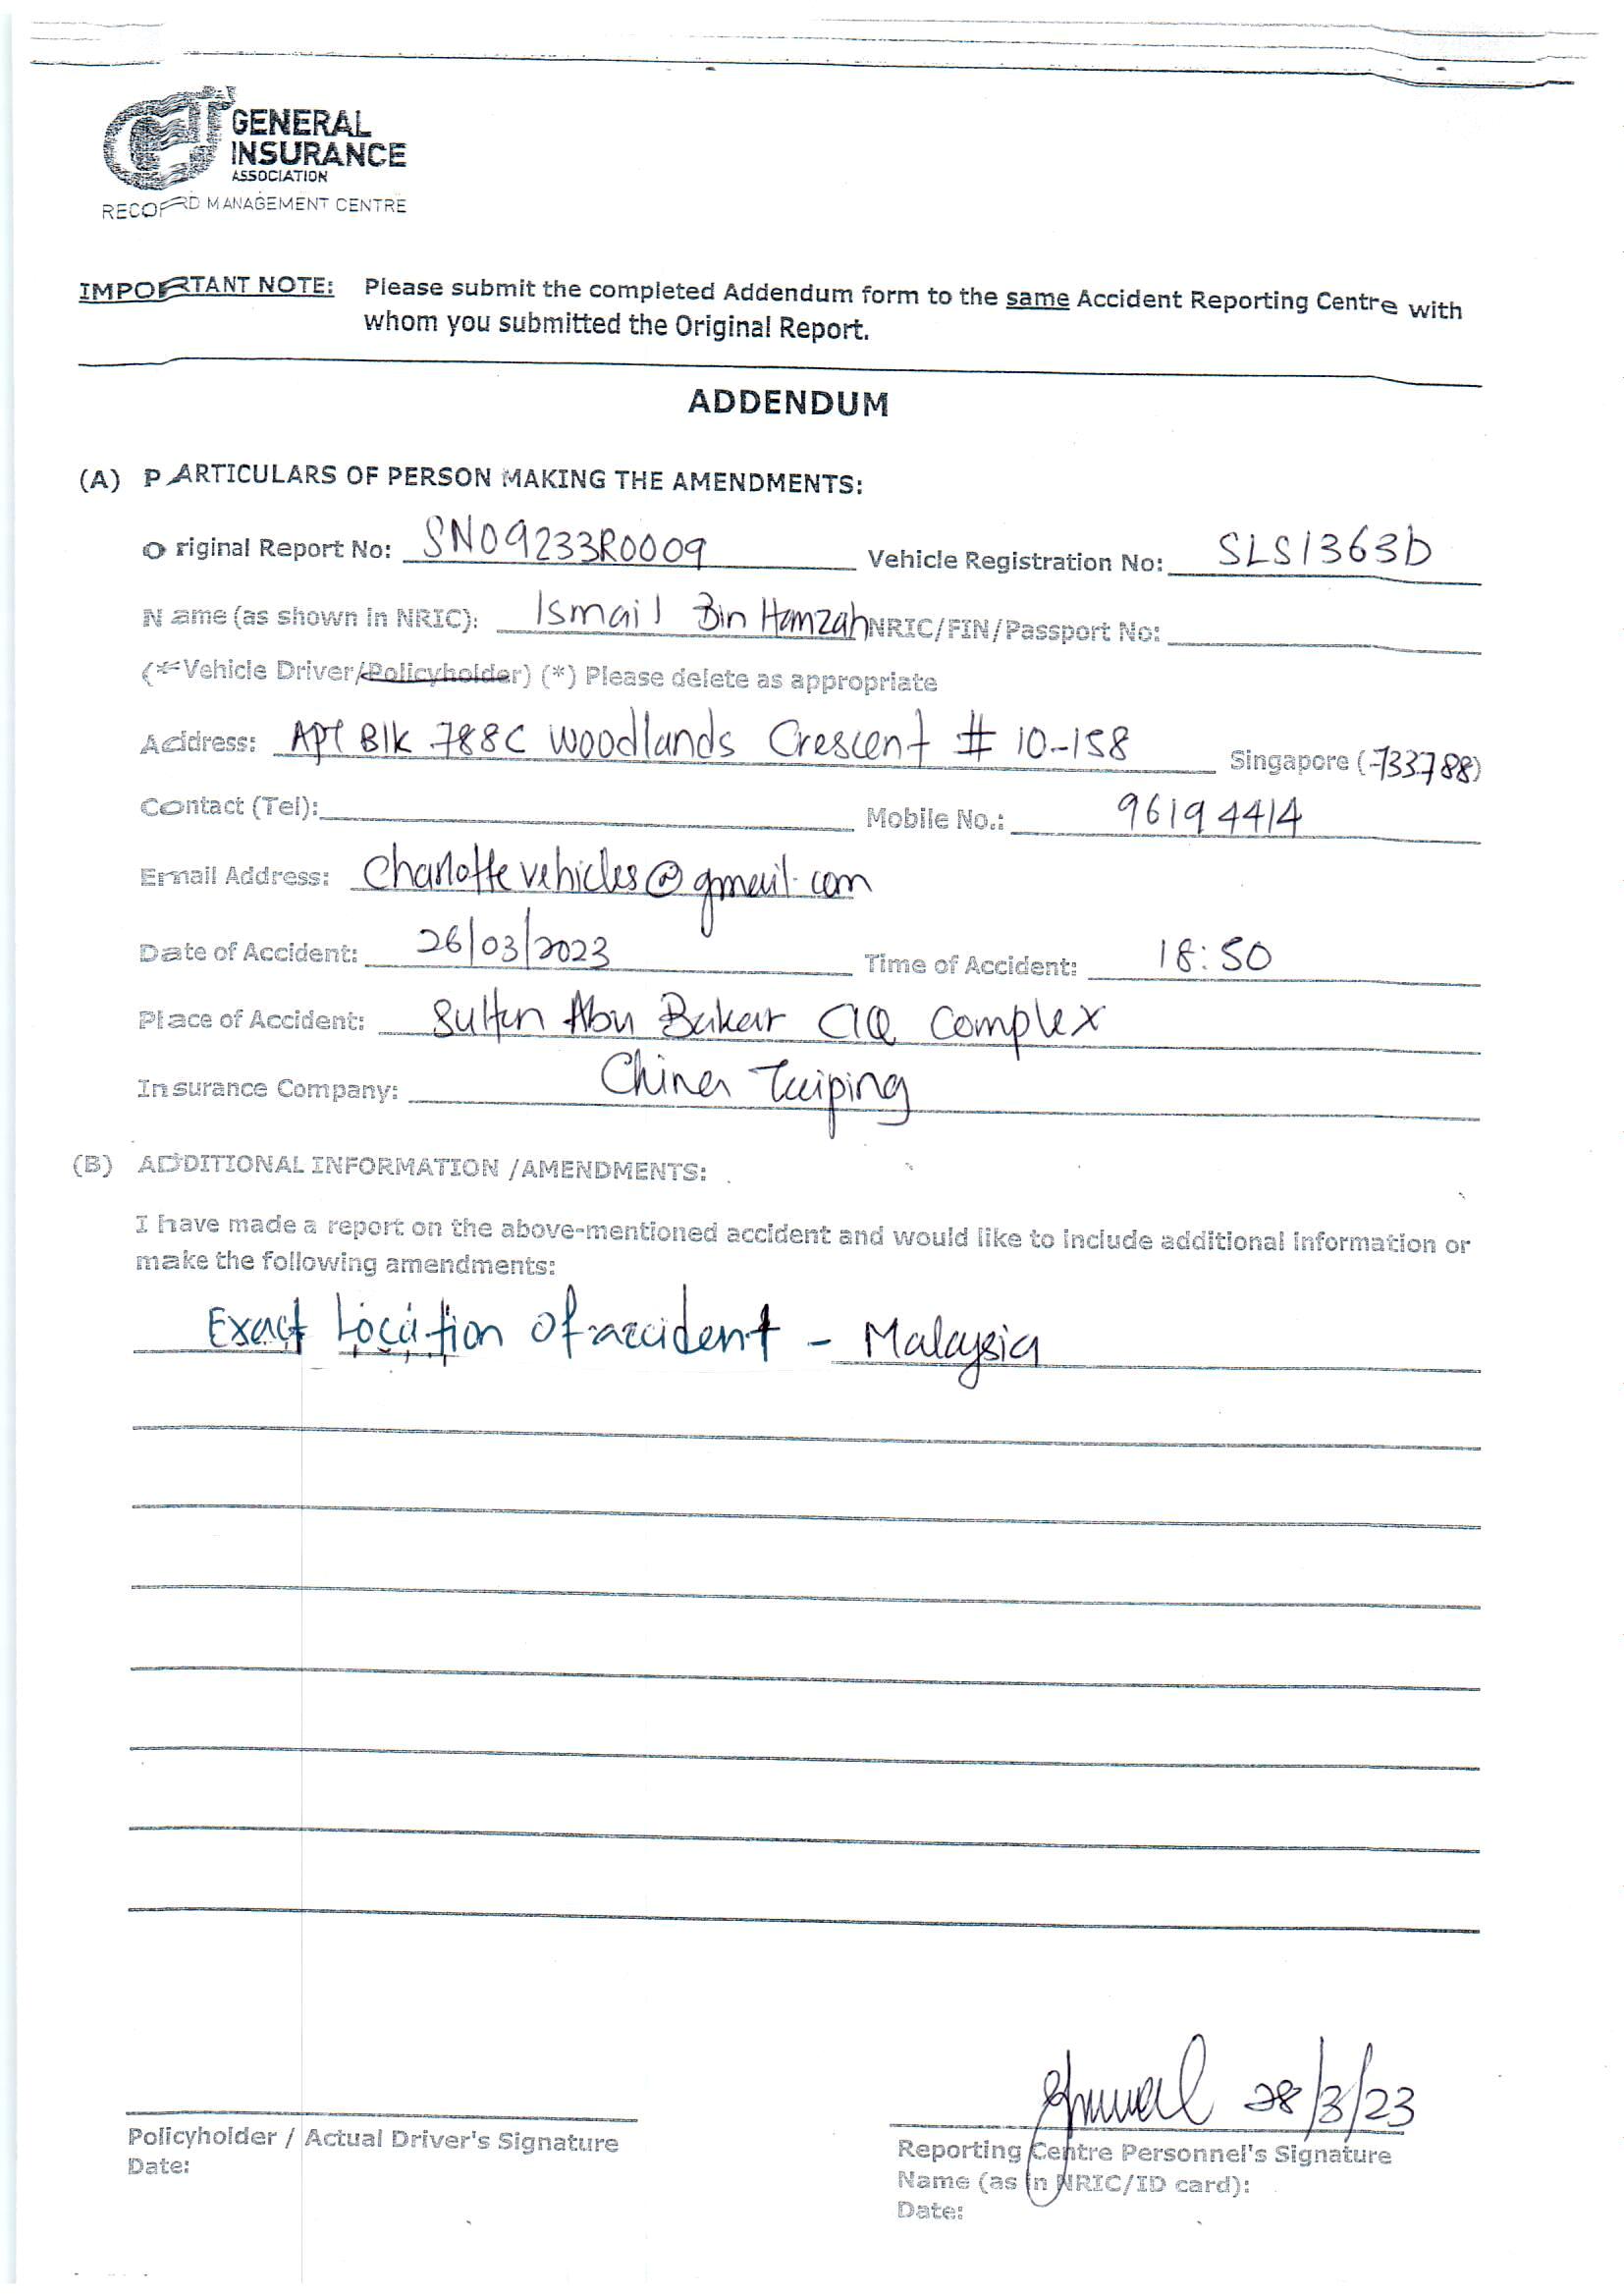 GENERAL
INSURANCE
ASSOCIATION
RECORD MANAGEMENT CENTRE
IMPORTANT NOTE: Please submit the completed Addendum form to the same Accident Reporting Centre with
whom you submitted the Original Report.
ADDENDUM
(A) PARTICULARS OF PERSON MAKING THE AMENDMENTS:
Original Report No: SN09233R0009 Vehicle Registration No: SLS1363D
Name (as shown in NRIC): Ismail Bin Hamzah NRIC/FIN/Passport No:
(*Vehicle Driver/Policyholder) (*) Please delete as appropriate
Address: Apt Blk 788C Woodlands Crescent # 10-158 Singapore (733788)
Contact (Tel): Mobile No.: 96194414
Email Address: charlottevehicles@gmail.com
Date of Accident: 26/03/2023 Time of Accident: 18:50
Place of Accident: Sultan Abu Bakar CIQ Complex
Insurance Company: China Taiping
(B) ADDITIONAL INFORMATION /AMENDMENTS:
I have made a report on the above-mentioned accident and would like to include additional information or
make the following amendments:
Exact Location of accident - Malaysia
28/3/23
Policyholder / Actual Driver's Signature Reporting Centre Personnel's Signature
Date: Name (as in NRIC/ID card):
Date: